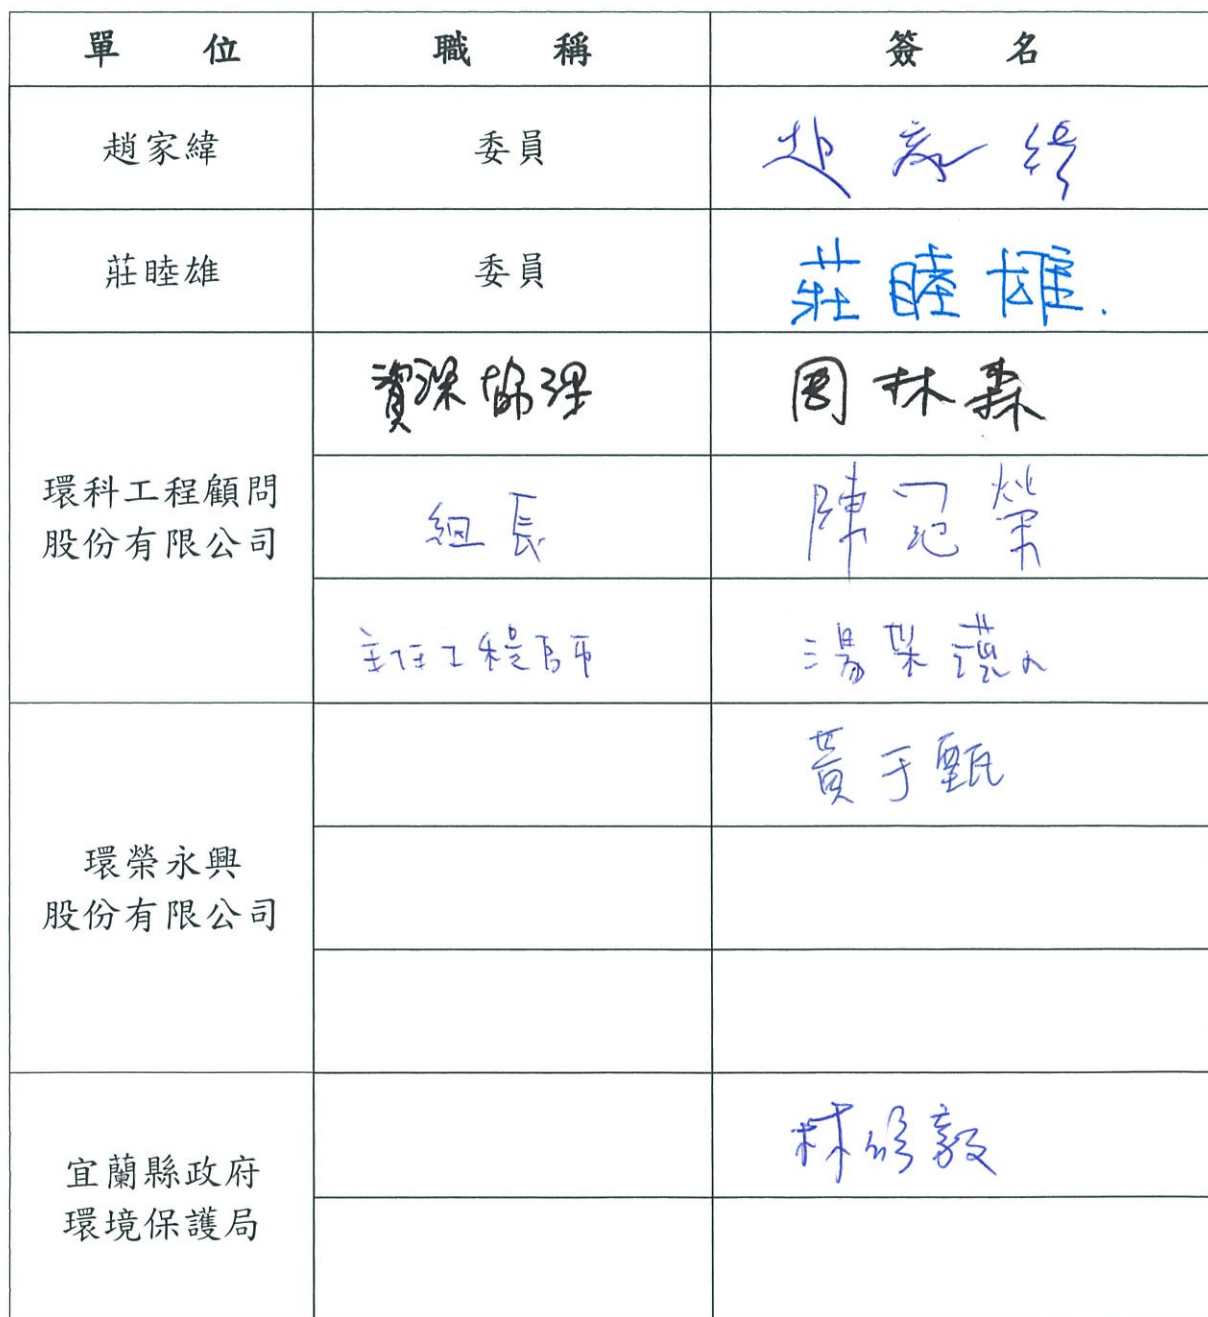 單 位 職 稱 簽 名
趙家緯 委員 趙家緯
莊睦雄 委員 莊睦雄.
環科工程顧問
股份有限公司
資深協理 周林森
組長 陳冠榮
主任工程師 湯
環榮永興
股份有限公司
黃于甄
宜蘭縣政府
環境保護局
林修毅